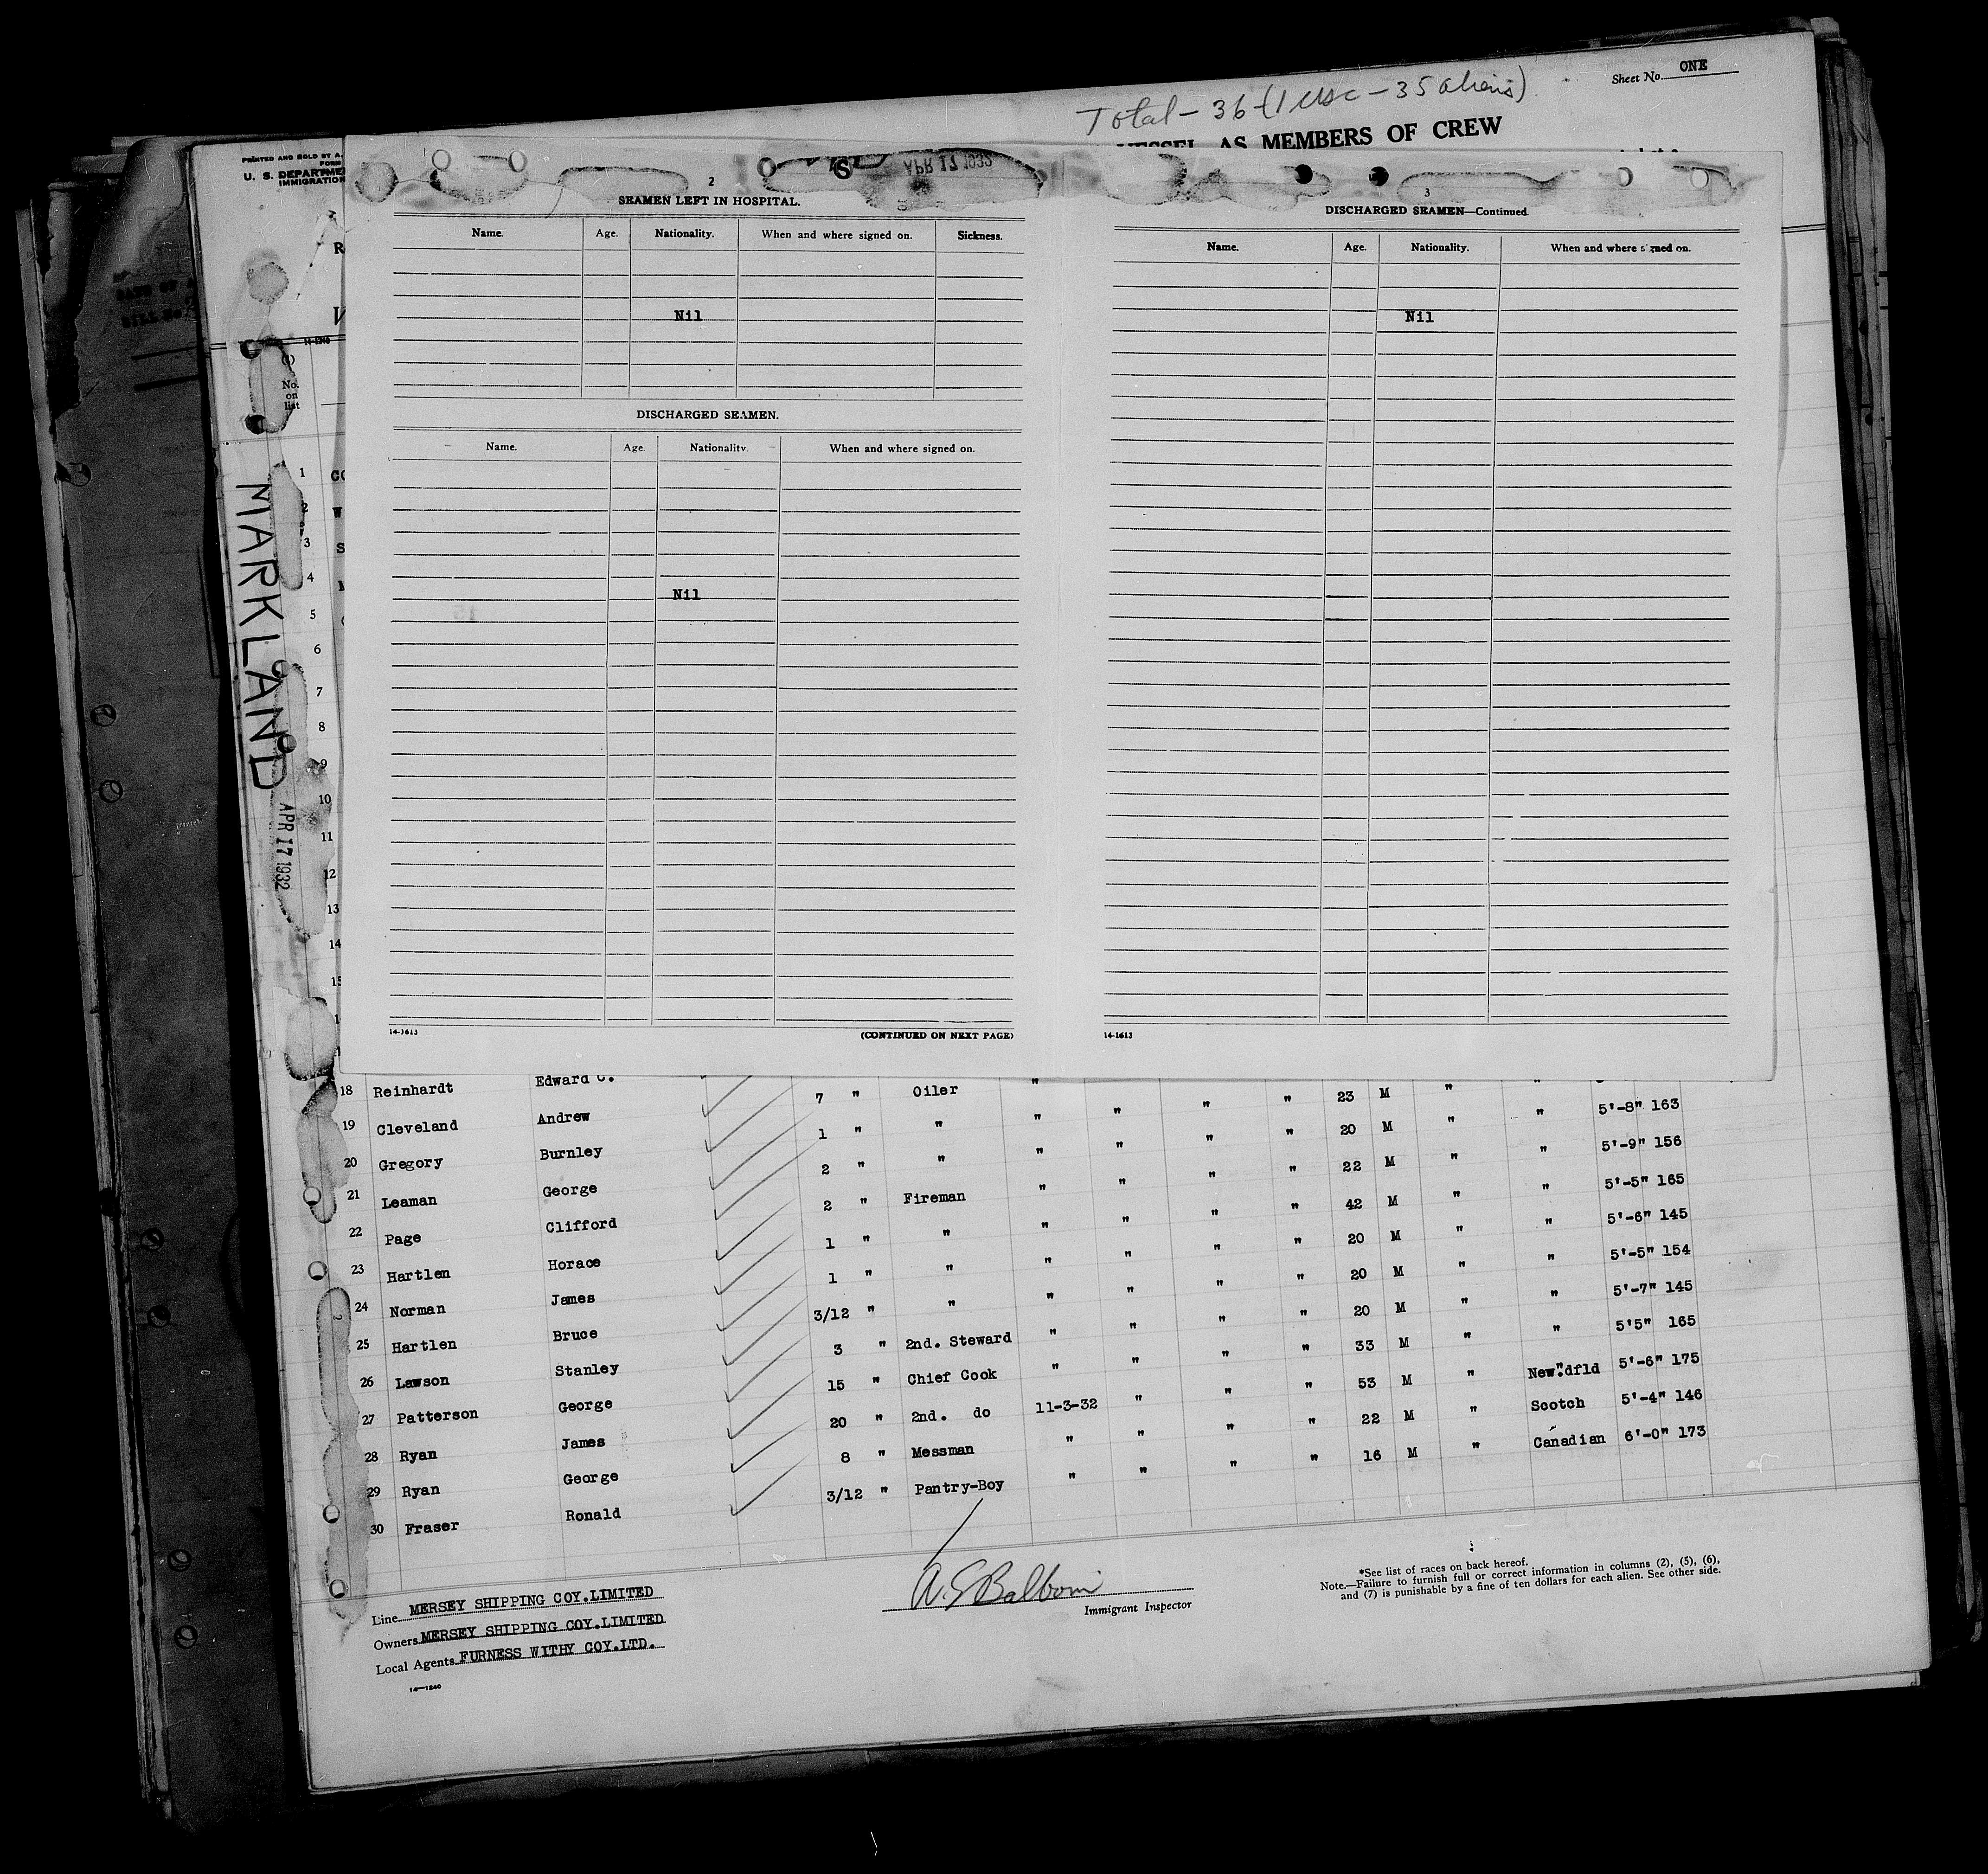 Sheet No. ONE
Total - 36 - (1 USC - 35 aliens)
VESSEL AS MEMBERS OF CREW
PRINTED AND SOLD BY A.
FORM
U. S. DEPARTME
IMMIGRATION
APR 17 1932
2
SEAMEN LEFT IN HOSPITAL.
Name. Age. Nationality. When and where signed on. Sickness.
Nil
DISCHARGED SEAMEN.
Name. Age. Nationality. When and where signed on.
Nil
14-1613 (CONTINUED ON NEXT PAGE)
3
DISCHARGED SEAMEN—Continued.
Name. Age. Nationality. When and where signed on.
Nil
14-1613
14-1240
No. on list
MARKLAND
APR 17 1932
1
2
3
4
5
6
7
8
9
10
11
12
13
14
15
18 Reinhardt Edward C.
19 Cleveland Andrew 7 " Oiler "
20 Gregory Burnley 1 " " " " " " 23 M " "
21 Leaman George 2 " " " " " " 20 M " " 5'-8" 163
22 Page Clifford 2 " Fireman " " " " 22 M " " 5'-9" 156
23 Hartlen Horace 1 " " " " " " 42 M " " 5'-5" 165
24 Norman James 1 " " " " " " 20 M " " 5'-6" 145
25 Hartlen Bruce 3/12 " " " " " " 20 M " " 5'-5" 154
26 Lawson Stanley 3 " 2nd. Steward " " " " 20 M " " 5'-7" 145
27 Patterson George 15 " Chief Cook " " " " 33 M " " 5'5" 165
28 Ryan James 20 " 2nd. do 11-3-32 " " " 53 M " New"dfld 5'-6" 175
29 Ryan George 8 " Messman " " " " 22 M " Scotch 5'-4" 146
30 Fraser Ronald 3/12 " Pantry-Boy " " " " 16 M " Canadian 6'-0" 173
Line MERSEY SHIPPING COY.LIMITED
Owners MERSEY SHIPPING COY.LIMITED
Local Agents FURNESS WITHY COY.LTD.
14—1240
Immigrant Inspector
*See list of races on back hereof.
Note.—Failure to furnish full or correct information in columns (2), (5), (6),
and (7) is punishable by a fine of ten dollars for each alien. See other side.